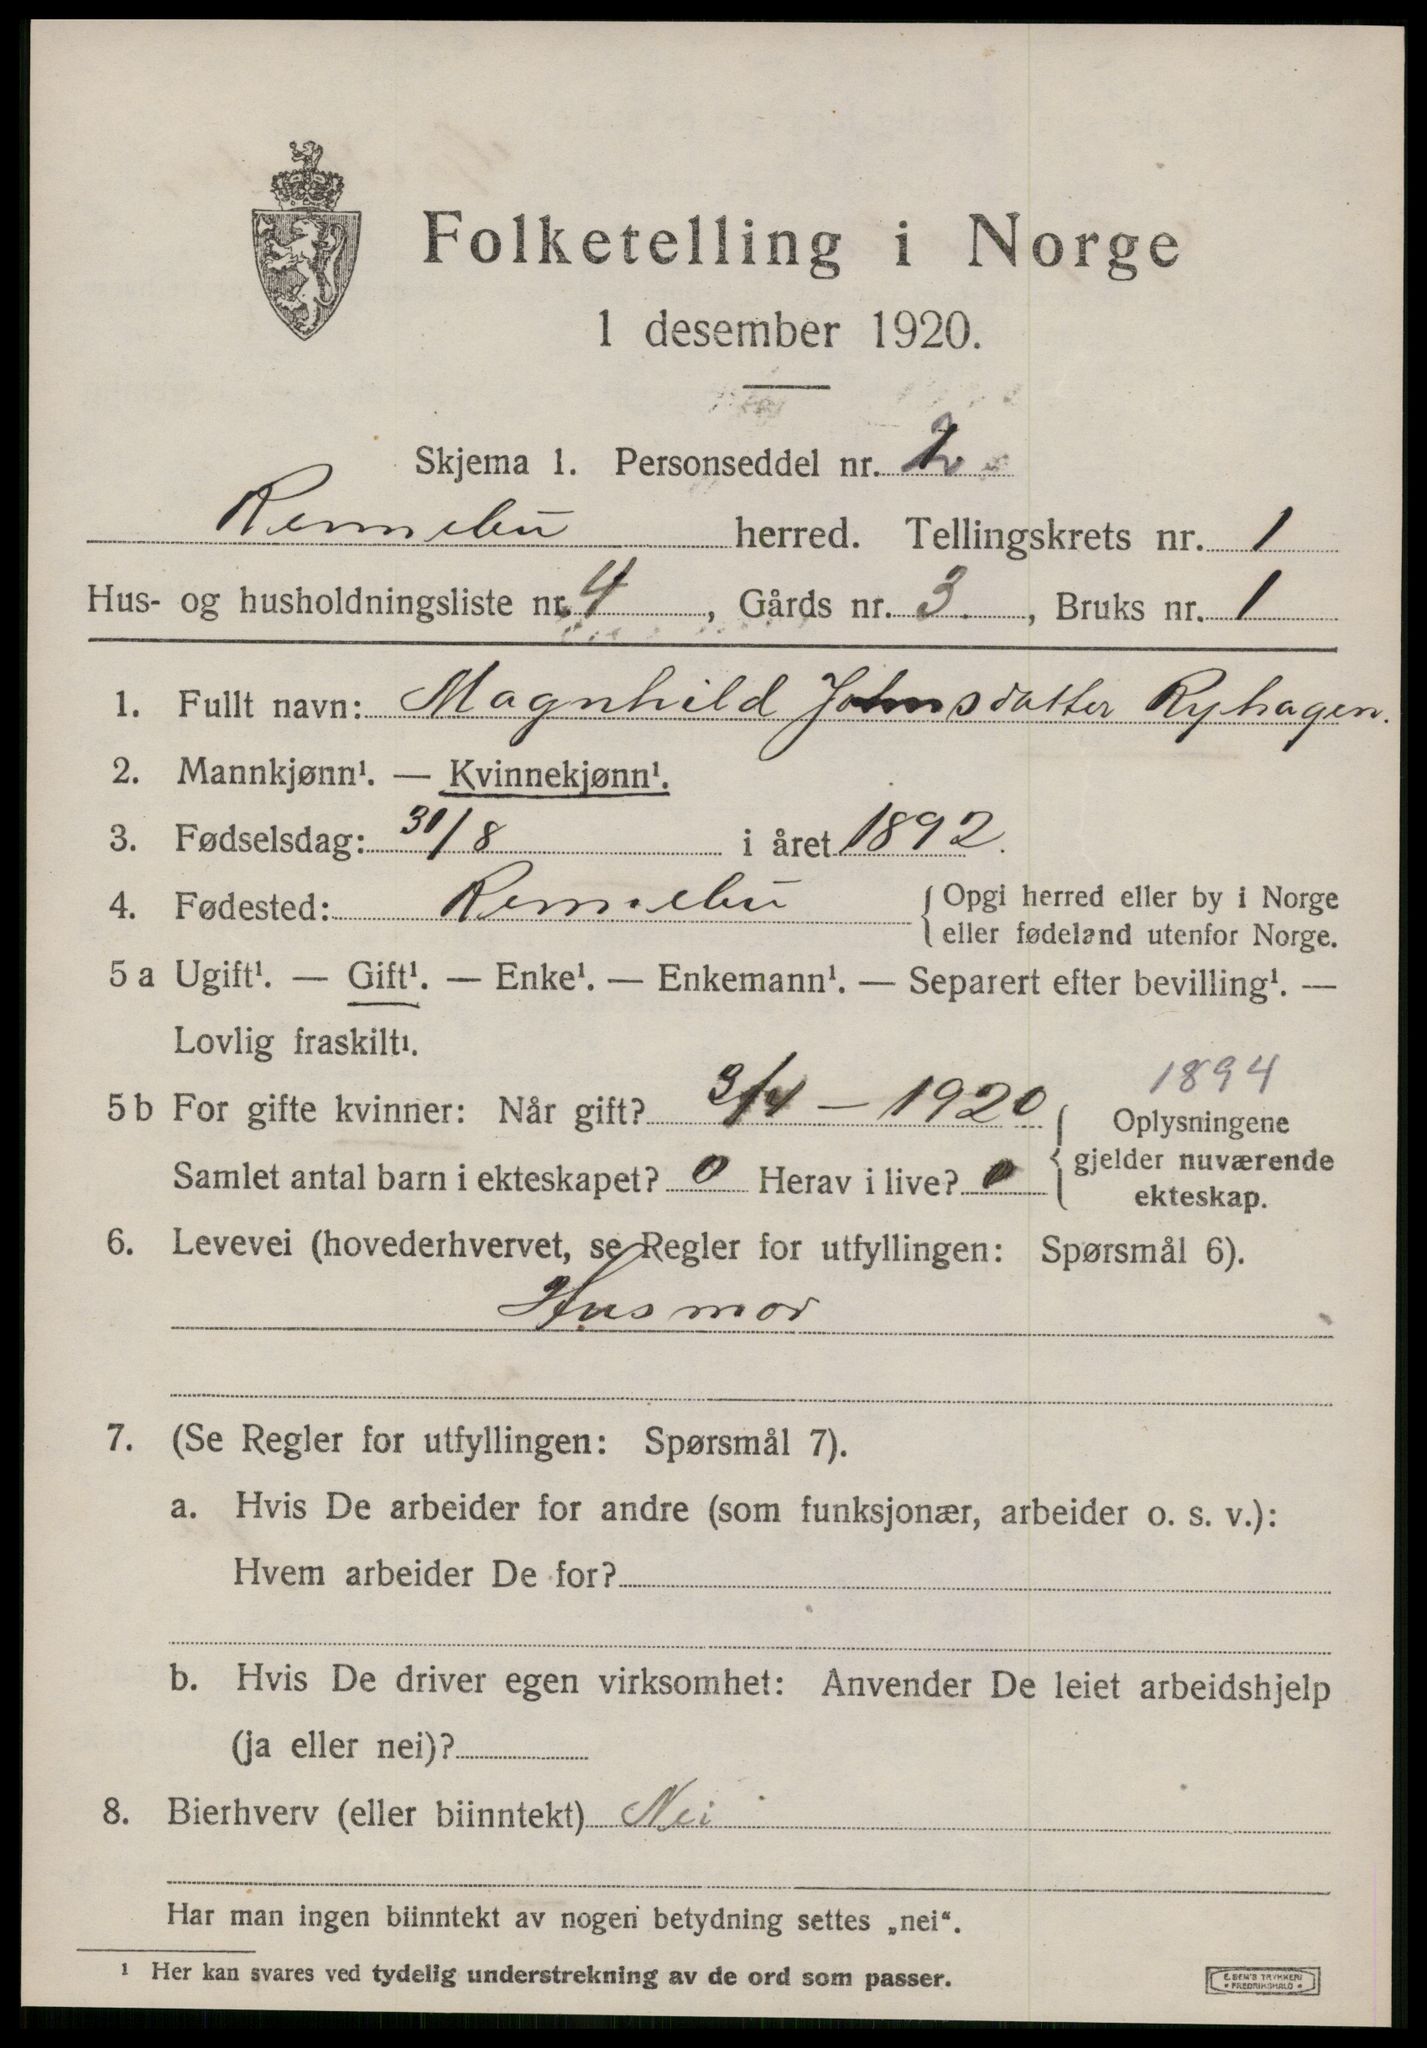 Folketelling i Norge
1 desember 1920.
Skjema 1. Personseddel nr. 2
Rennebu herred. Tellingskrets nr. 1
Hus- og husholdningsliste nr. 4, Gårds nr. 3., Bruks nr. 1
1. Fullt navn: Magnhild Johnsdatter Ryhagen.
2. Mannkjønn¹. — Kvinnekjønn¹.
3. Fødselsdag: 31/8 i året 1892.
4. Fødested: Rennebu { Opgi herred eller by i Norge
eller fødeland utenfor Norge.
5 a Ugift¹. — Gift¹. — Enke¹. — Enkemann¹. — Separert efter bevilling¹. —
Lovlig fraskilt¹.
1894
5 b For gifte kvinner: Når gift? 3/4 — 1920 { Oplysningene
gjelder nuværende
ekteskap.
Samlet antal barn i ekteskapet? 0 Herav i live? 0
6. Levevei (hovederhvervet, se Regler for utfyllingen: Spørsmål 6).
Husmor
7. (Se Regler for utfyllingen: Spørsmål 7).
a. Hvis De arbeider for andre (som funksjonær, arbeider o. s. v.):
Hvem arbeider De for?
b. Hvis De driver egen virksomhet: Anvender De leiet arbeidshjelp
(ja eller nei)?
8. Bierhverv (eller biinntekt) Nei
Har man ingen biinntekt av nogen betydning settes „nei“.
¹ Her kan svares ved tydelig understrekning av de ord som passer.
E. SEM'S TRYKKERI
FREDRIKSHALD